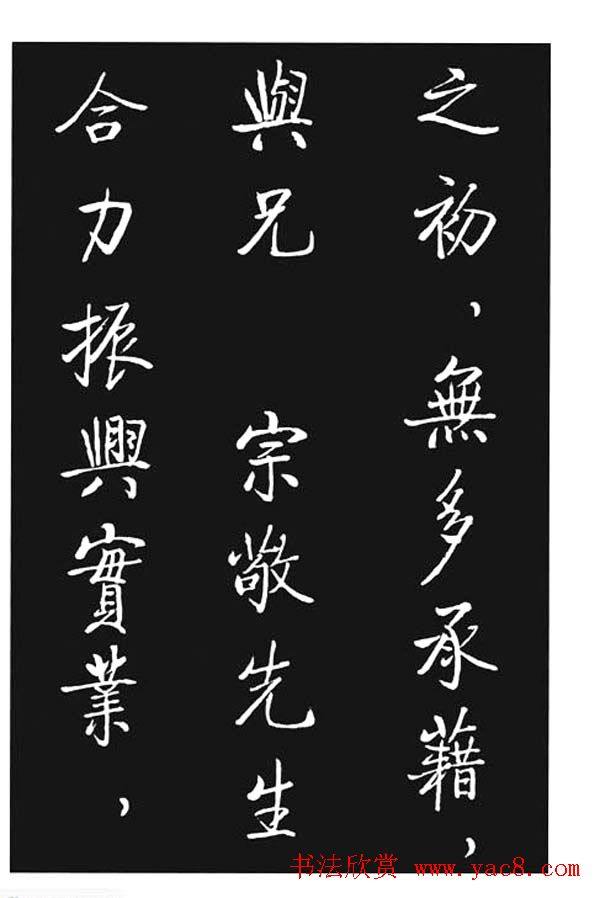 之初，無多承藉，
與兄　宗敬先生
合力振興實業，
书法欣赏 www.yac8.com